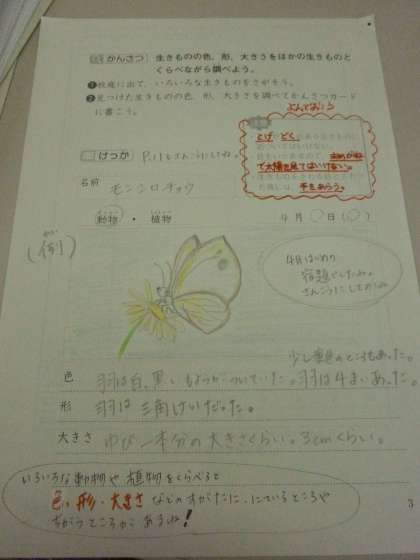 かんさつ 生きものの色,形,大きさをほかの生きものと
くらべながら調べよう。
❶校庭に出て,いろいろな生きものをさがそう。
❷見つけた生きものの色,形,大きさを調べてかんさつカード
に書こう。
よんでおこう
とげ どく
で太陽を見てはいけない。
手をあらう。
けっか P.11もさんこうにしてね。
名前 モンシロチョウ
動物 ・ 植物
4月 ○日(○)
(例)
4月はじめの
宿題でしたね。
さんこうにしてのね
少し黄色のところもあった。
色 羽は白、黒いもようがついていた。羽は4まいあった。
形 羽は三角けいだった。
大きさ ゆび一本分の大きさくらい。3cmくらい。
いろいろな動物や植物をくらべると
色、形・大きさなどのすがたに、にているところや
ちがうところがあるね!
3